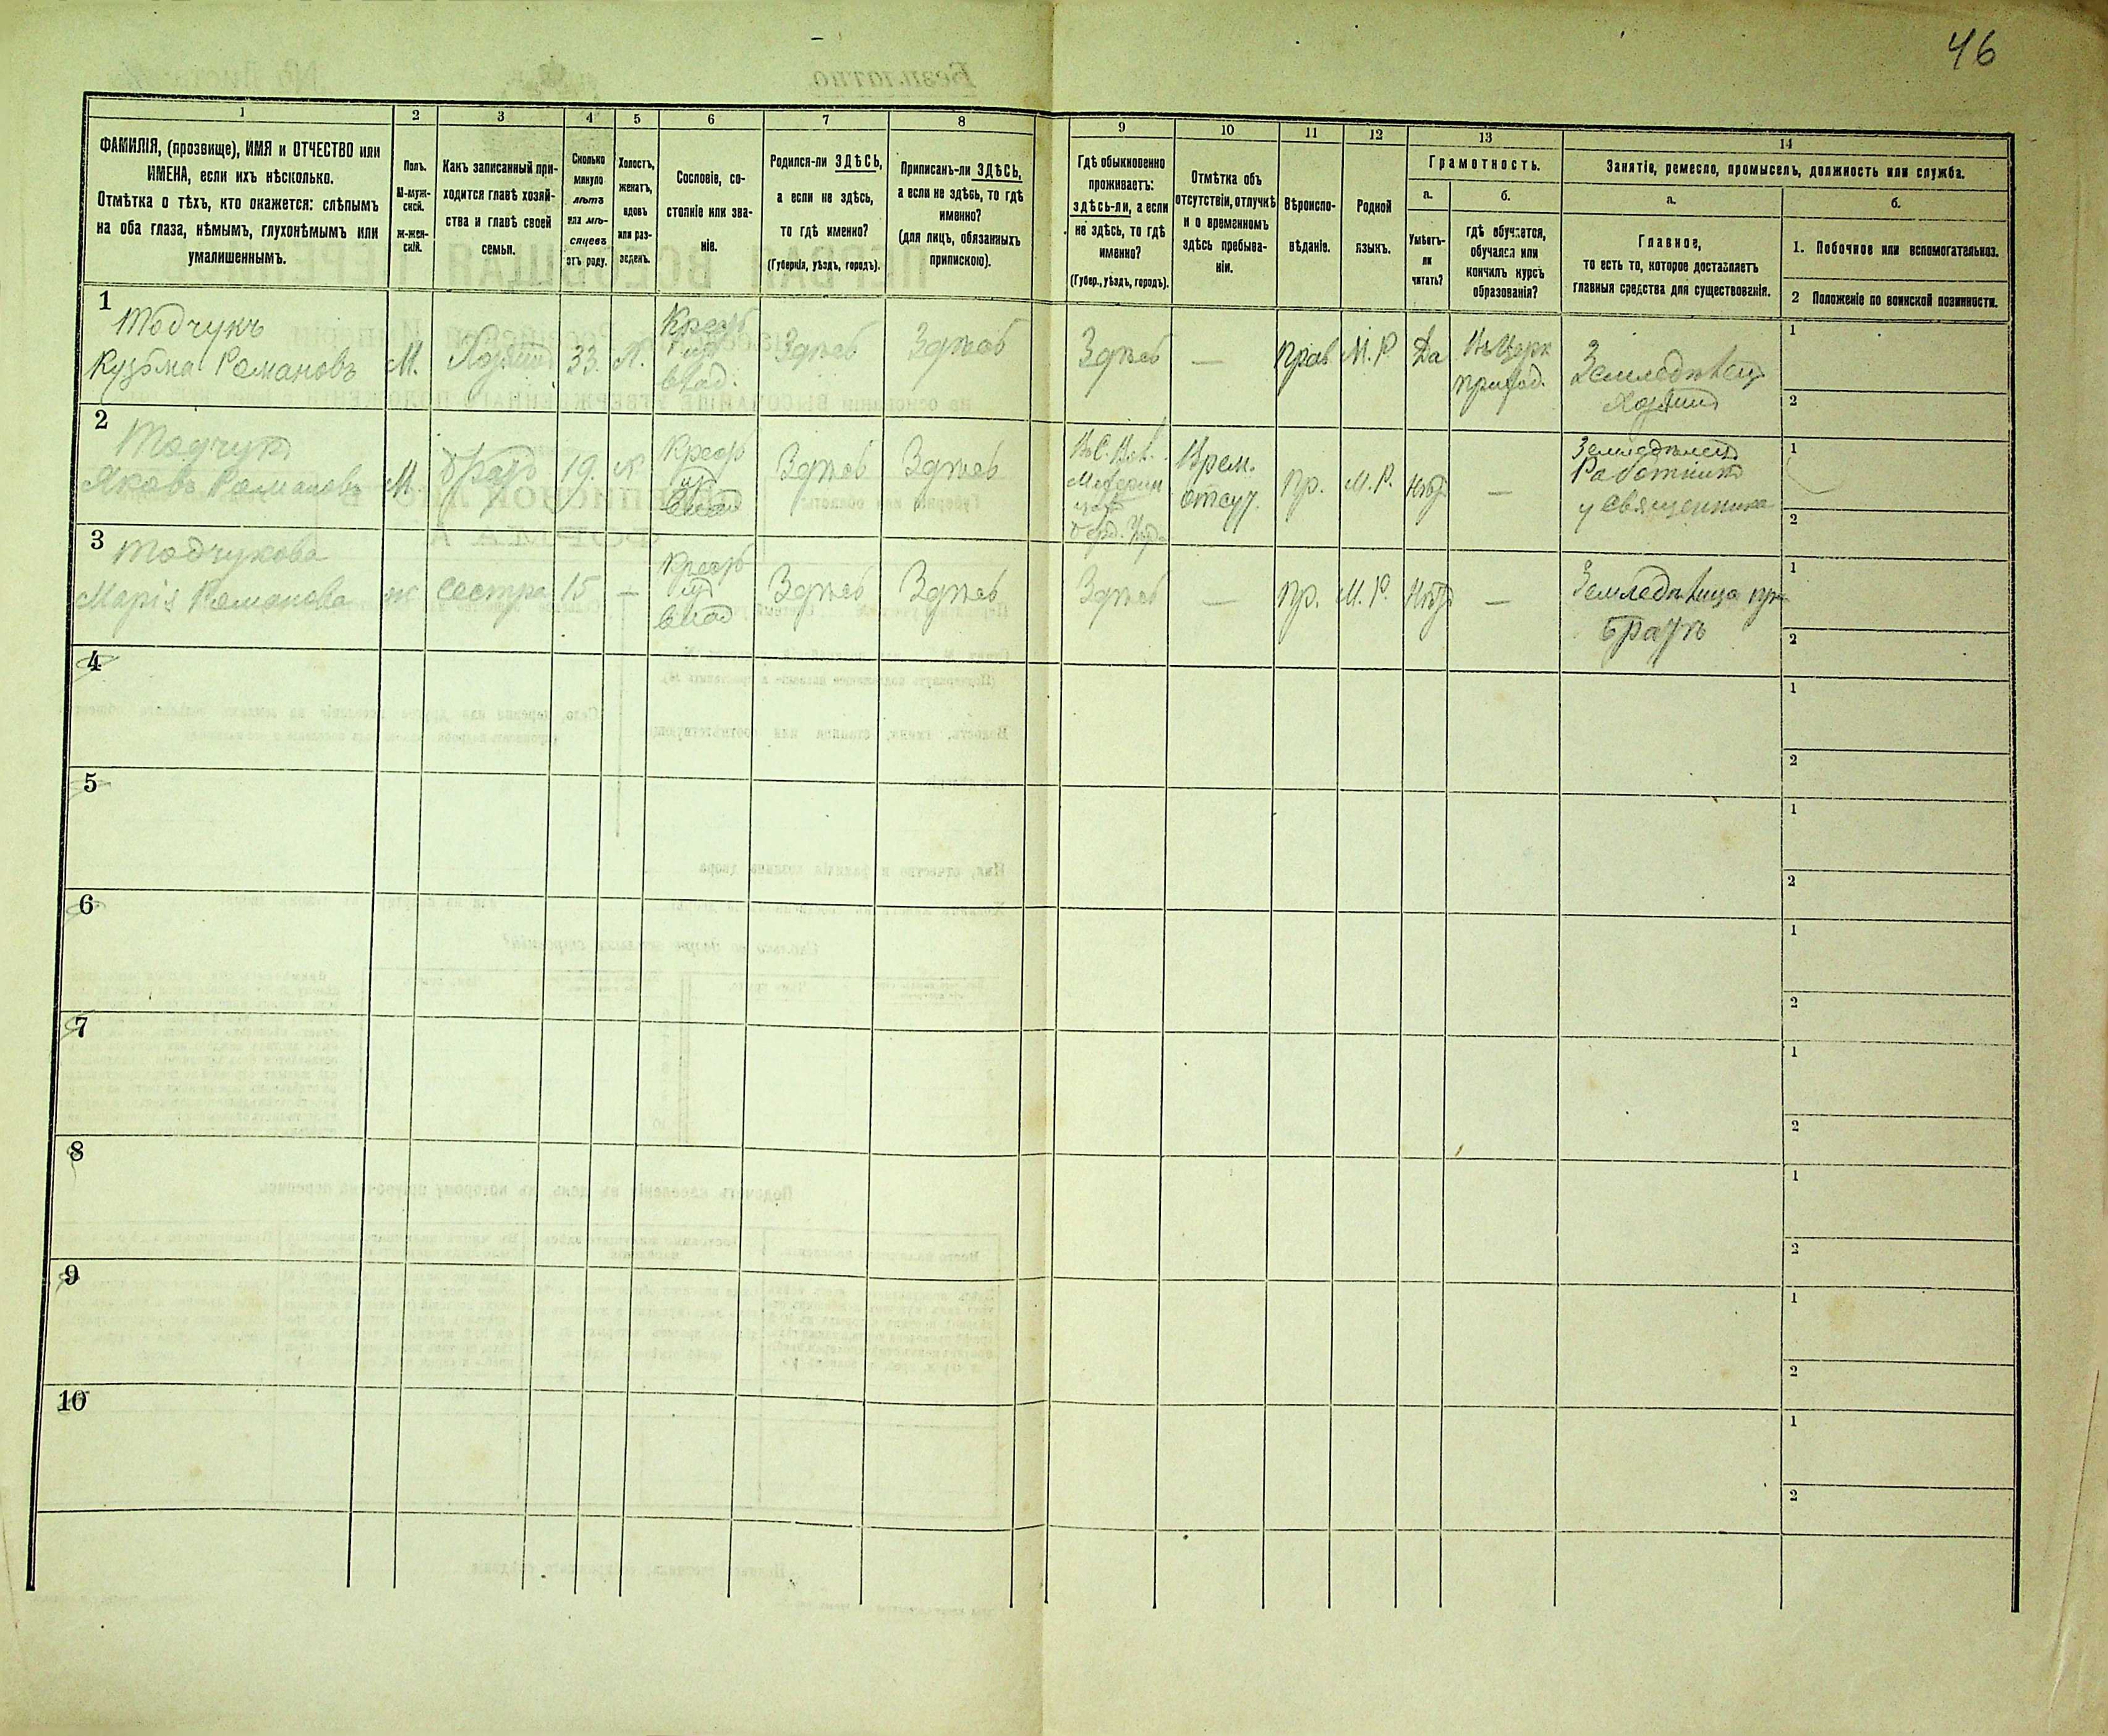 46
1
2
3
4
5
6
7
8
9
10
11
12
13
14
ФАМИЛІЯ, (прозвище), ИМЯ и ОТЧЕСТВО или
ИМЕНА, если ихъ нѣсколько.
Отмѣтка о тѣхъ, кто окажется: слѣпымъ
на оба глаза, нѣмымъ, глухонѣмымъ или
умалишеннымъ.
Полъ.
М-муж-
ской.
Ж-жен-
скій.
Какъ записанный при-
ходится главѣ хозяй-
ства и главѣ своей
семьи.
Сколько
минуло
лѣтъ
или мѣ-
сяцевъ
отъ роду.
Холостъ,
женатъ,
вдовъ
или раз-
веденъ.
Сословіе, со-
стояніе или зва-
ніе.
Родился-ли ЗДѢСЬ,
а если не здѣсь,
то гдѣ именно?
(Губернія, уѣздъ, городъ).
Приписанъ-ли ЗДѢСЬ,
а если не здѣсь, то гдѣ
именно?
(для лицъ, обязанныхъ
припискою).
Гдѣ обыкновенно
проживаетъ:
здѣсь-ли, а если
не здѣсь, то гдѣ
именно?
(Губер., уѣздъ, городъ).
Отмѣтка объ
отсутствіи, отлучкѣ
и о временномъ
здѣсь пребыва-
ніи.
Вѣроиспо-
вѣданіе.
Родной
языкъ.
Грамотность.
а.
Умѣетъ-
ли
читать?
б.
гдѣ обучается,
обучался или
кончилъ курсъ
образованія?
Занятіе, ремесло, промыселъ, должность или служба.
а.
Главное,
то есть то, которое доставляетъ
главныя средства для существованія.
б.
1. Побочное или вспомогательное.
2 Положеніе по воинской повинности.
1
Тодчукъ
Кузьма Романовъ
М.
Хозяинъ
33.
Х.
Здѣсь
Здѣсь
Здѣсь
—
Прав
М. Р.
Да
Въ Церк
приход.
Земледѣлецъ
Хозяинъ
1
2
2
Тодчукъ
Яковъ Романовъ
М.
Братъ
19.
Х
Здѣсь
Здѣсь
Врем.
отсут.
Пр.
М. Р.
Нѣтъ
—
Земледѣлецъ
Работникъ
у священника
1
2
3
Тодчукова
Марія Романова
Ж
сестра
15
—
Здѣсь
Здѣсь
Здѣсь
—
Пр.
М. Р.
Нѣтъ
—
Земледѣлица при
братѣ
1
2
4
1
2
5
1
2
6
1
2
7
1
2
8
1
2
9
1
2
10
1
2